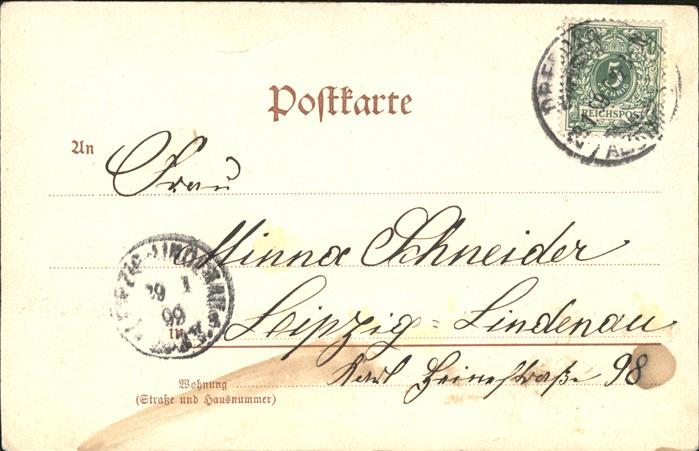 5
PFENNIG
REICHSPOST
Postkarte
An
Frau
Minna Schneider
in
Leipzig=Lindenau
Karl Heinestraße 98
Wohnung
(Straße und Hausnummer)
LEIPZIG-LINDENAU
29 1
99